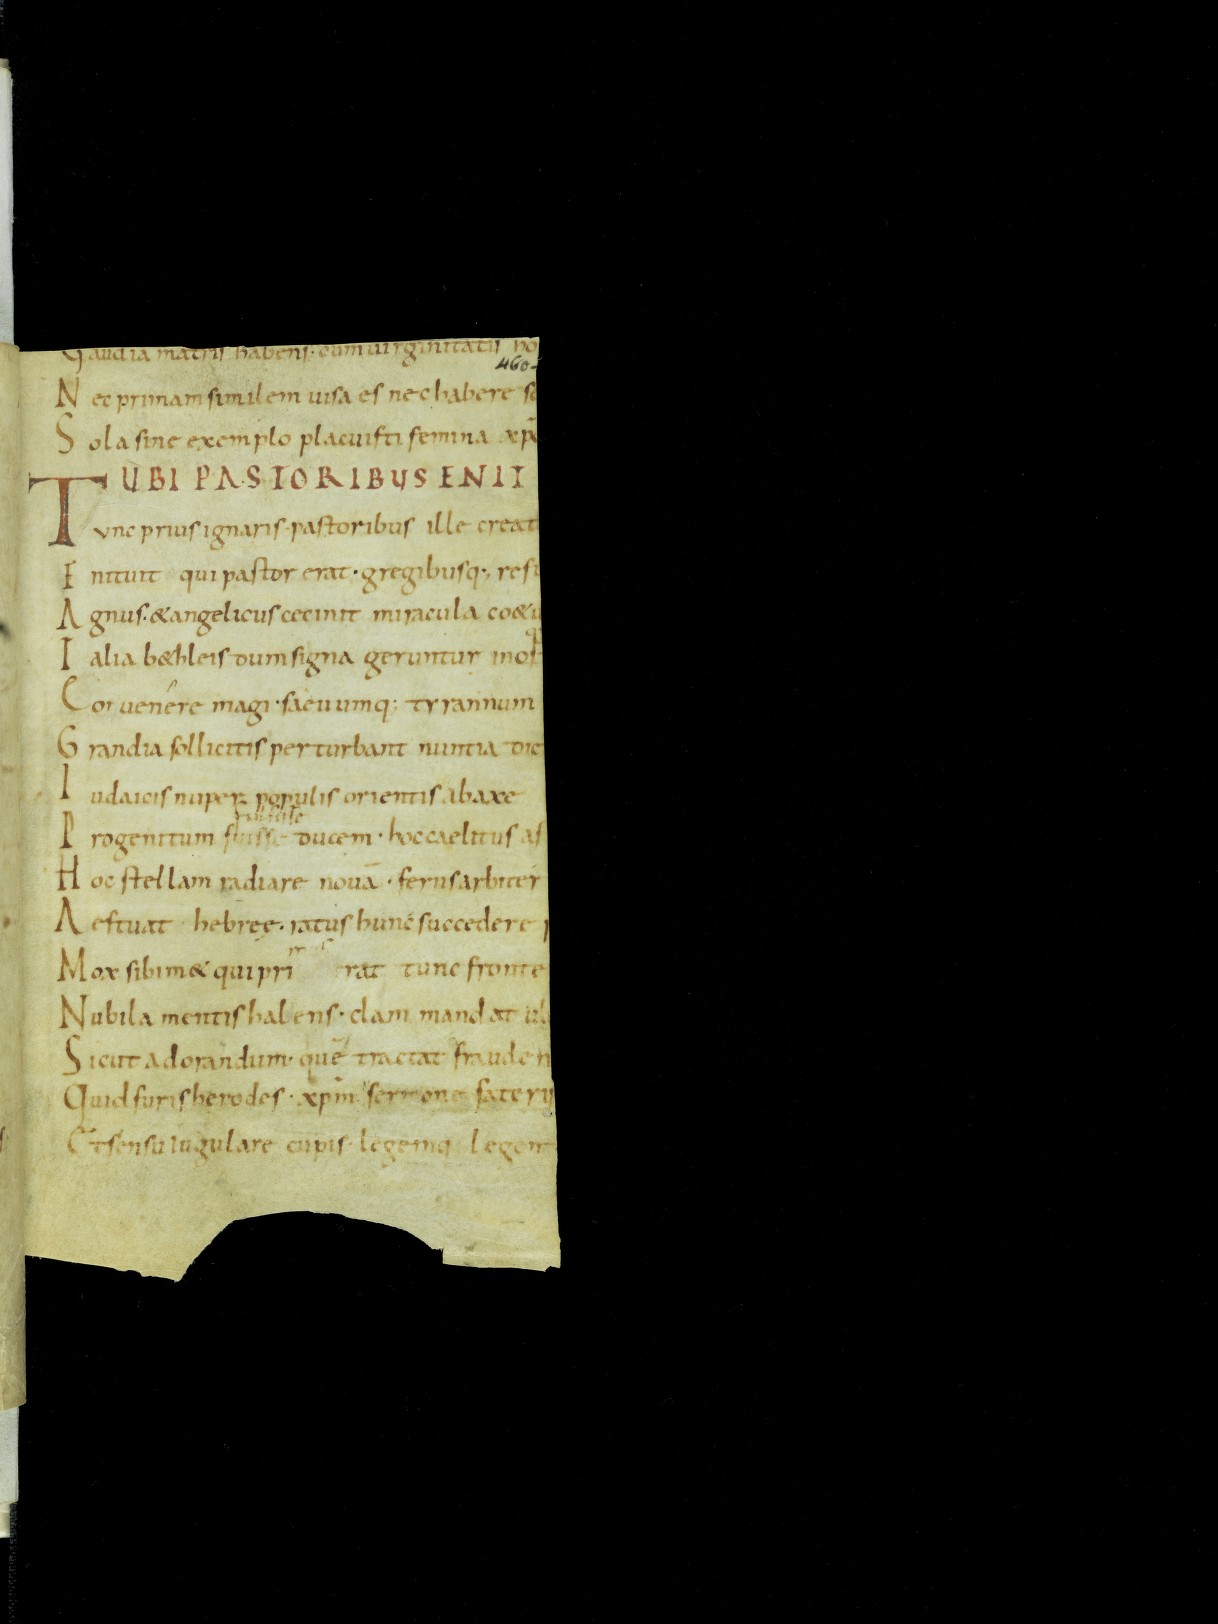 Gaudia matris habens cum uirginitatis ho
460
Nec primam similem uisa es nec habere se
Sola sine exemplo placuisti femina xp̄
UBI PASTORIBUS ENIT
Tunc prius ignaris · pastoribus ille creat
Enituit qui pastor erat · gregibusq; ref
Agnus · & angelicus cecinit miracula co&u
Talia b&hleis dum signa geruntur in o
Conuenére magi · saeuumq; tyrannum
Grandia sollicitis perturbant nuntia dic
Iudaicis nuper populis orientis ab axe
Progenitum fulsisse ducem · hoc caelitus as
Hoc stellam radiare nouā · ferus arbiter
Aestuat hebreę · ratus hunc succedere
Mox sibim& qui pri rat tunc fronte
Nubila mentis habens · clam mandat
Sicut adorandum · quē tractat fraude n
Quid furis herodes · xp̄m sermone fateris
Et sensu iugulare cupis · legemq; legem